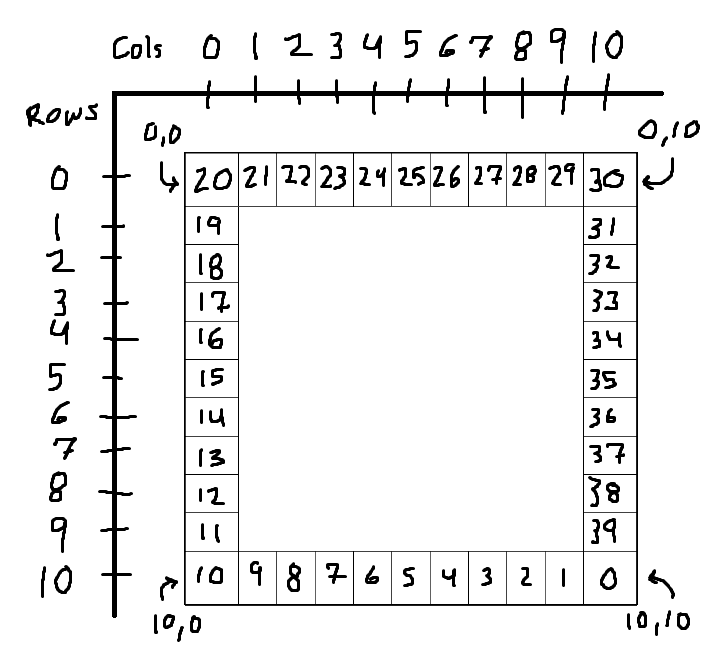 Cols 0 1 2 3 4 5 6 7 8 9 10
ROWS
0,0 0,10
0 20 21 22 23 24 25 26 27 28 29 30
1 19 31
2 18 32
3 17 33
4 16 34
5 15 35
6 14 36
7 13 37
8 12 38
9 11 39
10 10 9 8 7 6 5 4 3 2 1 0
10,0 10,10